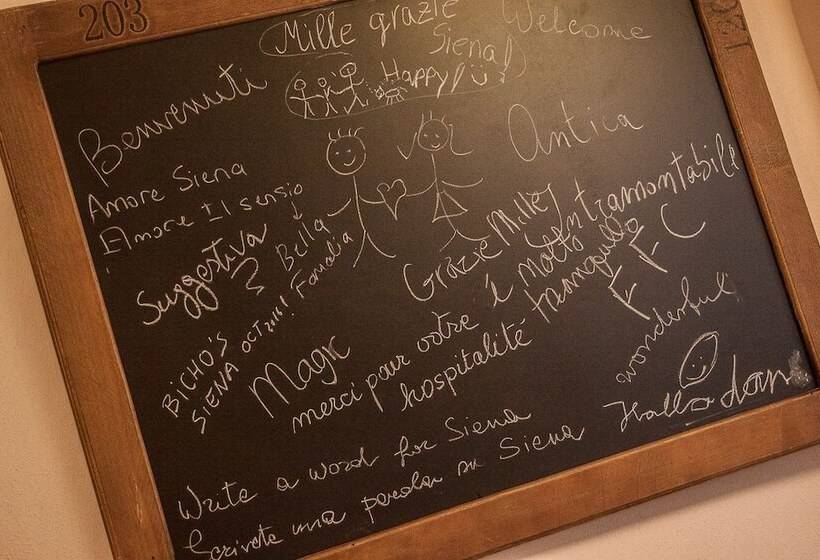 203
Mille grazie
Siena!
Welcome
Happy!
Benvenuti
Antica
Amore Siena
Amore Il sensio
Suggestiva
Bella
Famalia
Grazie Mille
Intramontabile
é molto
tranquillo
F F C
BICHO'S
SIENA OCT
Magic
merci pour votre
hospitalité
wonderful
Hallå
Write a word for Siena
Scrivete una parola su Siena